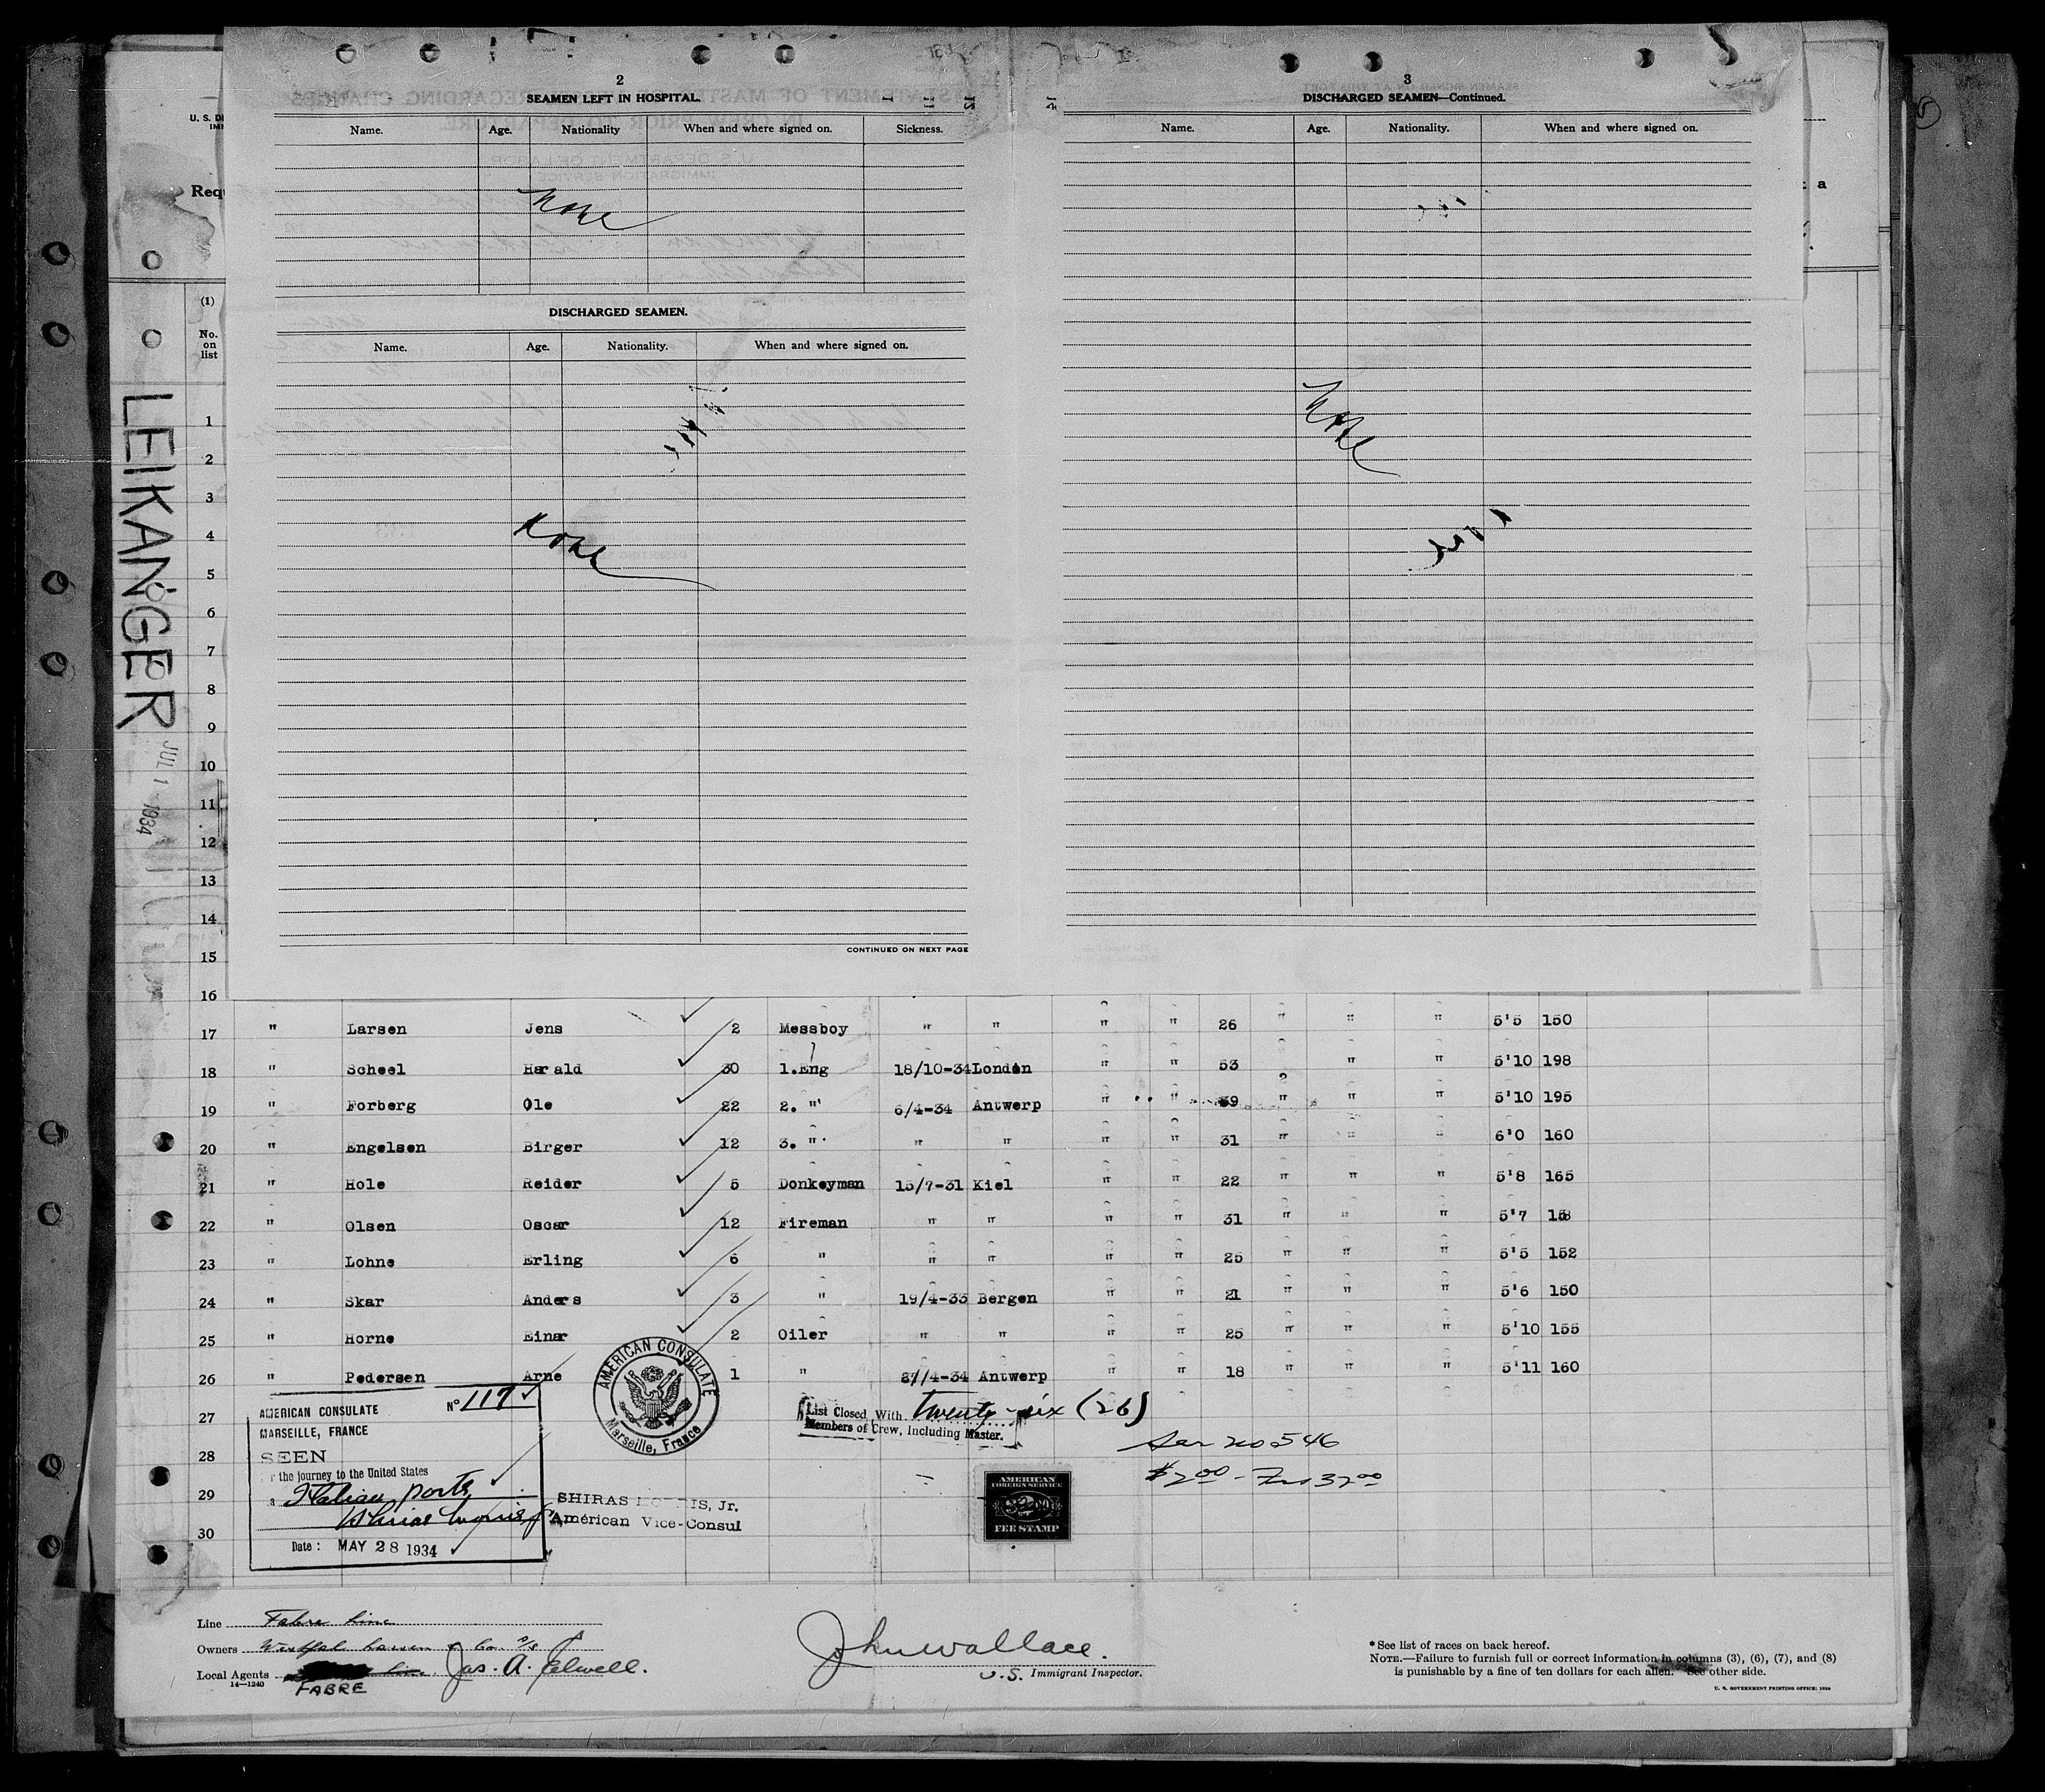 2
SEAMEN LEFT IN HOSPITAL.
Name. Age. Nationality When and where signed on. Sickness.
None
DISCHARGED SEAMEN.
Name. Age. Nationality. When and where signed on.
None
CONTINUED ON NEXT PAGE
3
DISCHARGED SEAMEN—Continued.
Name. Age. Nationality. When and where signed on.
None
U. S. D
Requ
a
(1)
No. on list
LEIKANGER
JUL 1 - 1934
5
1
2
3
4
5
6
7
8
9
10
11
12
13
14
15
16
17 " Larsen Jens 2 Messboy " " " " 26 " " " 5'5 150
18 " Scheel Harald 30 1.Eng 18/10-34 London " " 53 " " 5'10 198
19 " Forberg Ole 22 2. " 6/4-34 Antwerp " " 39 " " " 5'10 195
20 " Engelsen Birger 12 3. " " " " " 31 " " " 6'0 160
21 " Hole Reider 5 Donkeyman 15/7-31 Kiel " " 22 " " " 5'8 165
22 " Olsen Oscar 12 Fireman " " " " 31 " " " 5'7 158
23 " Lohne Erling 6 " " " " " 25 " " " 5'5 152
24 " Skar Anders 3 " 19/4-33 Bergen " " 21 " " " 5'6 150
25 " Horne Einar 2 Oiler " " " " 25 " " " 5'10 155
26 " Pedersen Arne 1 " /4-34 Antwerp " " 18 " " " 5'11 160
27
28
29
30
AMERICAN CONSULATE No 117
MARSEILLE, FRANCE
SEEN
r the journey to the United States
a Italian ports
Shiras Morris Jr.
Date: MAY 28 1934
AMERICAN CONSULATE
Marseille, France
SHIRAS MORRIS, Jr.
American Vice-Consul
List Closed With twenty-six (26)
Members of Crew, Including Master.
Ser no 546
$2.00 - Frs 32.00
AMERICAN
FOREIGN SERVICE
FEE STAMP
Line Fabre Line
Owners Westfal Larsen & Co. A/S
Local Agents Jas. A. Elwell.
FABRE
14—1240
John Wallace.
U.S. Immigrant Inspector.
* See list of races on back hereof.
NOTE.—Failure to furnish full or correct information in columns (3), (6), (7), and (8)
is punishable by a fine of ten dollars for each alien. See other side.
U. S. GOVERNMENT PRINTING OFFICE: 1930